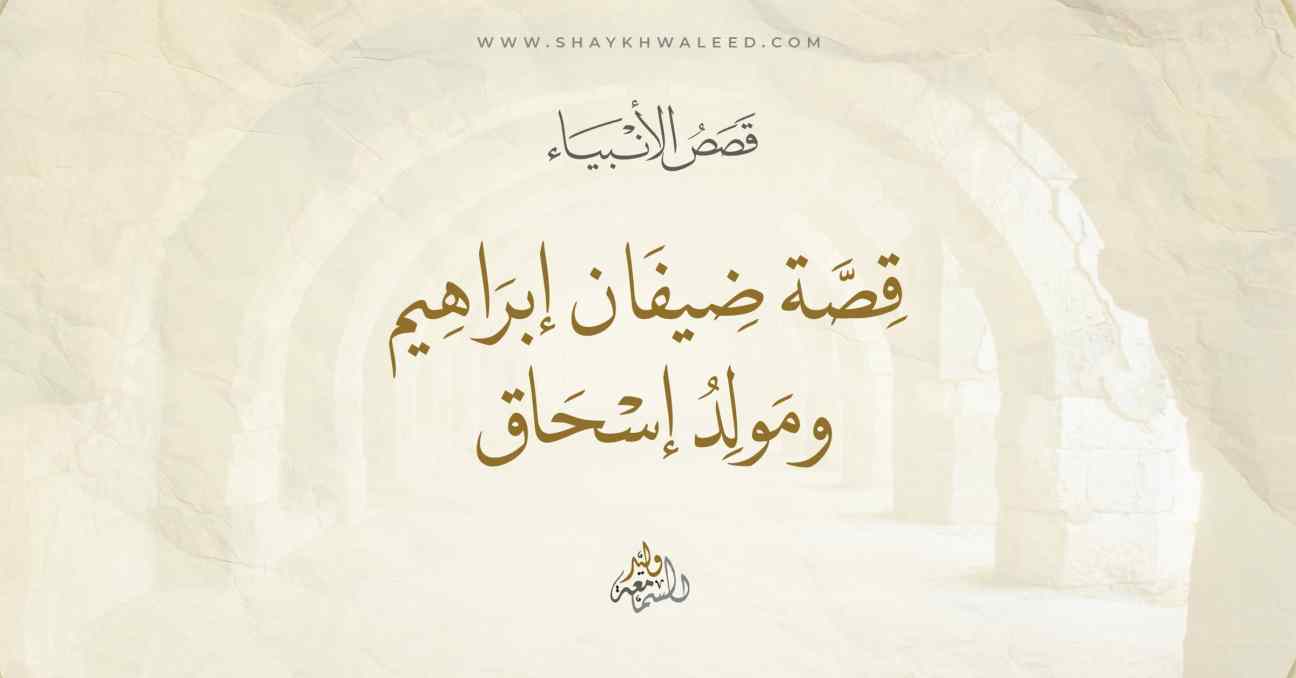 WWW.SHAYKHWALEED.COM
قَصَصُ الأنْبيَاء
قِصَّة ضِيفَان إبرَاهِيم
ومَولِدُ إسْحَاق
وليد
السمامعة